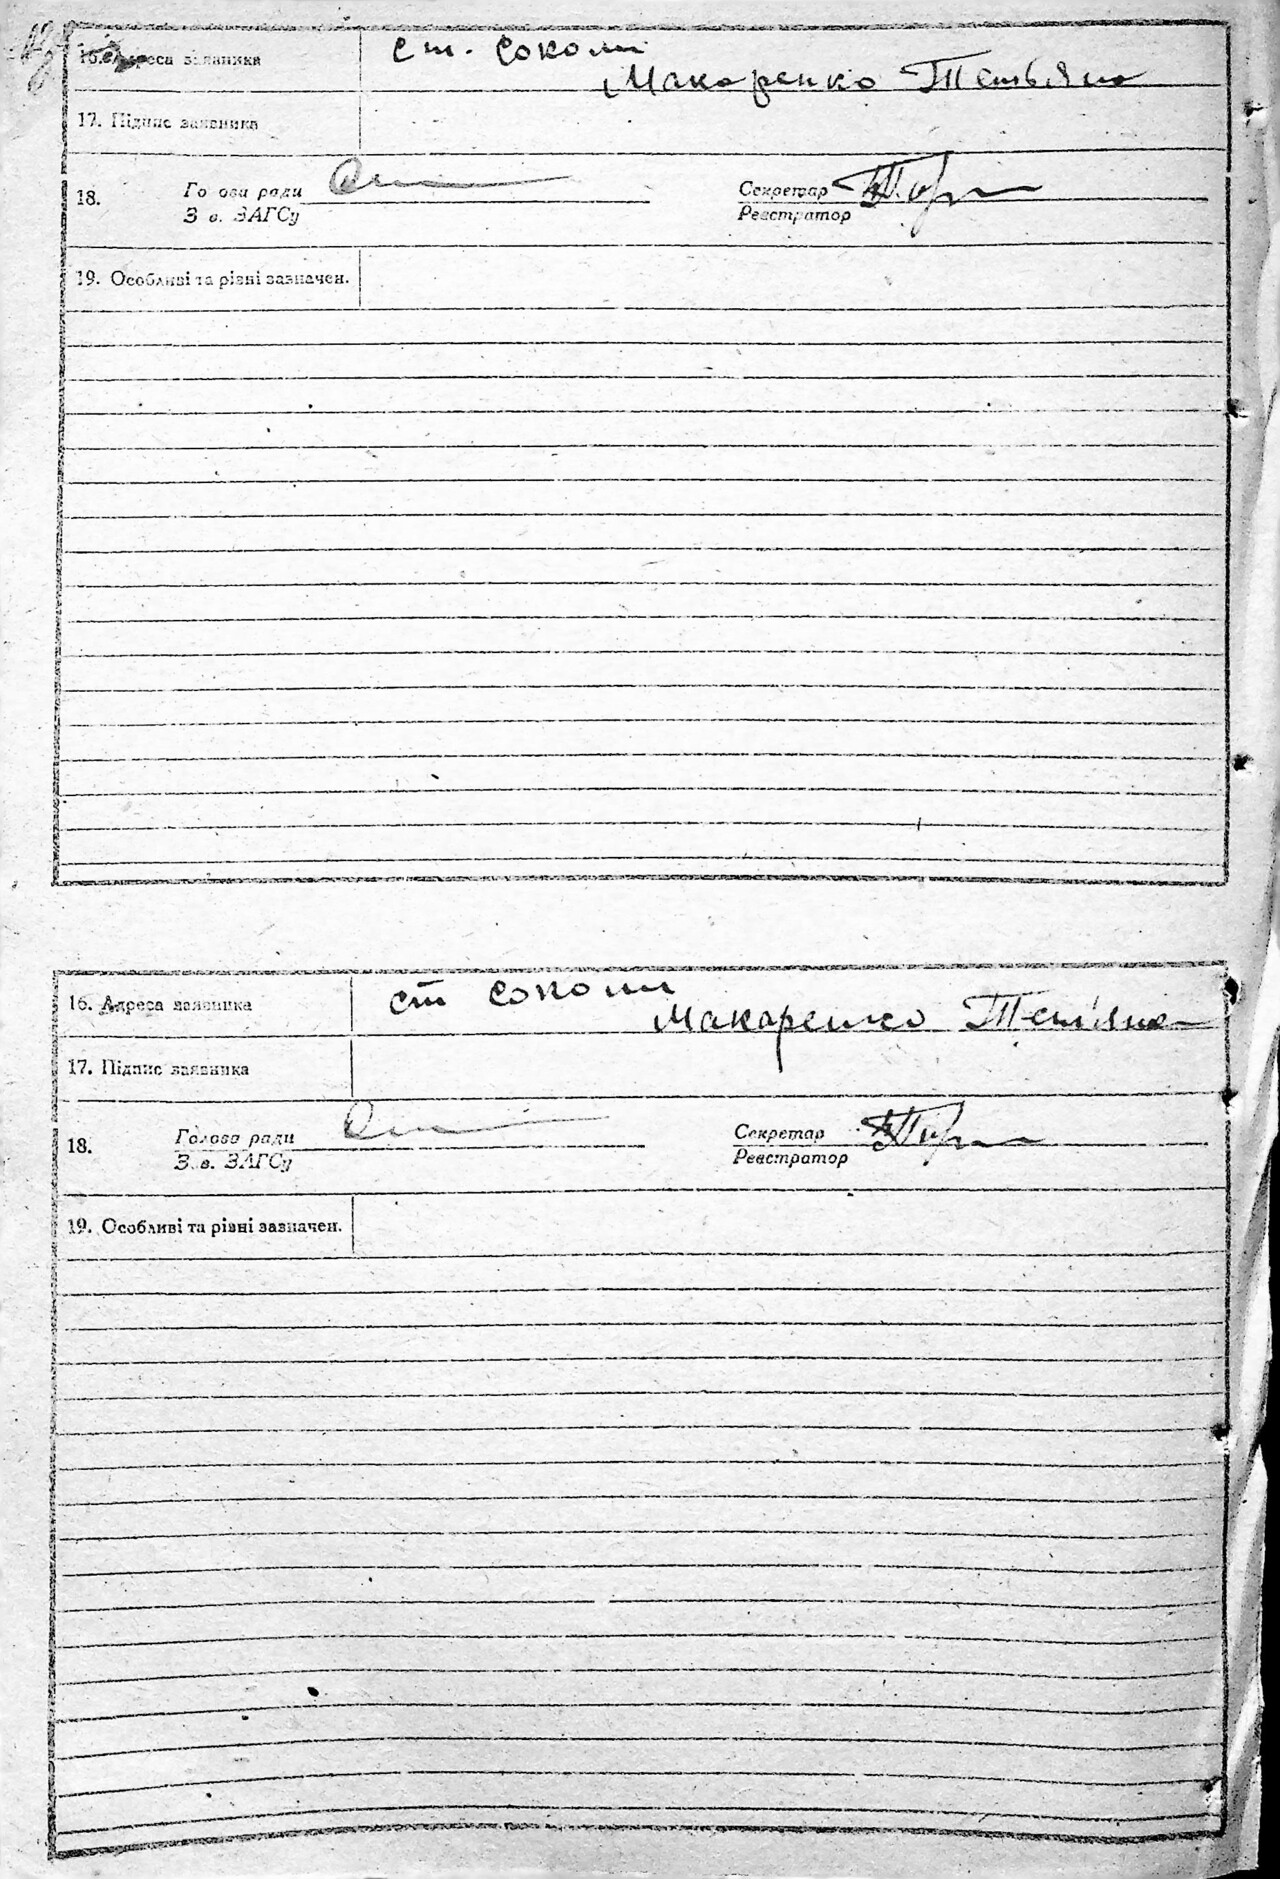 16. Адреса заявника ст. Соколи
Макаренко Тетьяна
17. Підпис заявника
18. Го ова ради Секретар
З в. ЗАГСу Реєстратор
19. Особливі та рівні зазначен.
16. Адреса заявника ст Соколи
Макаренко Тет'яна
17. Підпис заявника
18. Голова ради Секретар
З.в. ЗАГСу Реєстратор
19. Особливі та рівні зазначен.